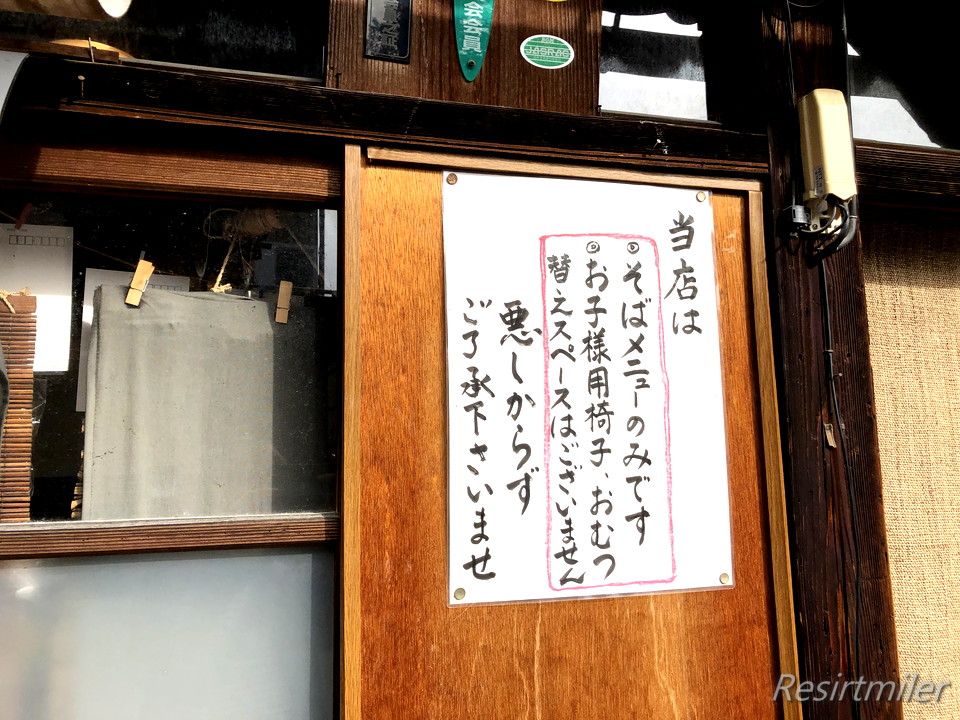 当店は
◎そばメニューのみです
◎お子様用椅子、おむつ
替えスペースはございません
悪しからず
ご了承下さいませ
JASRAC
会員
Resirtmiler